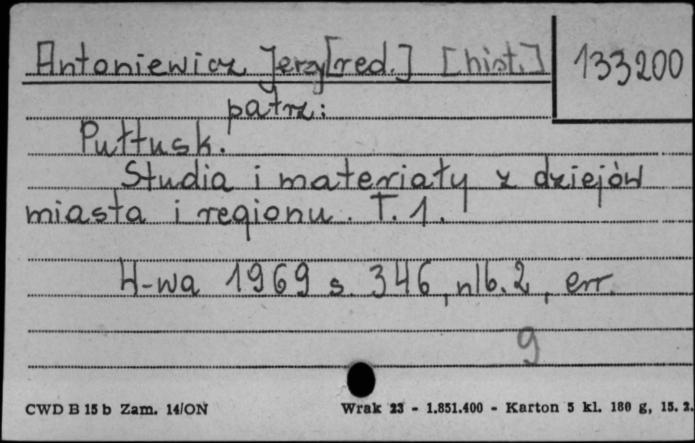 Antoniewicz Jerzy [red.] [hist.] 133200
patrz:
Pułtusk.
Studia i materiały z dziejów
miasta i regionu. T. 1.
W-wa 1969 s. 346, nlb. 2, err.
9
CWD B 15 b Zam. 14/ON Wrak 23 - 1.851.400 - Karton 5 kl. 180 g, 15. 2.